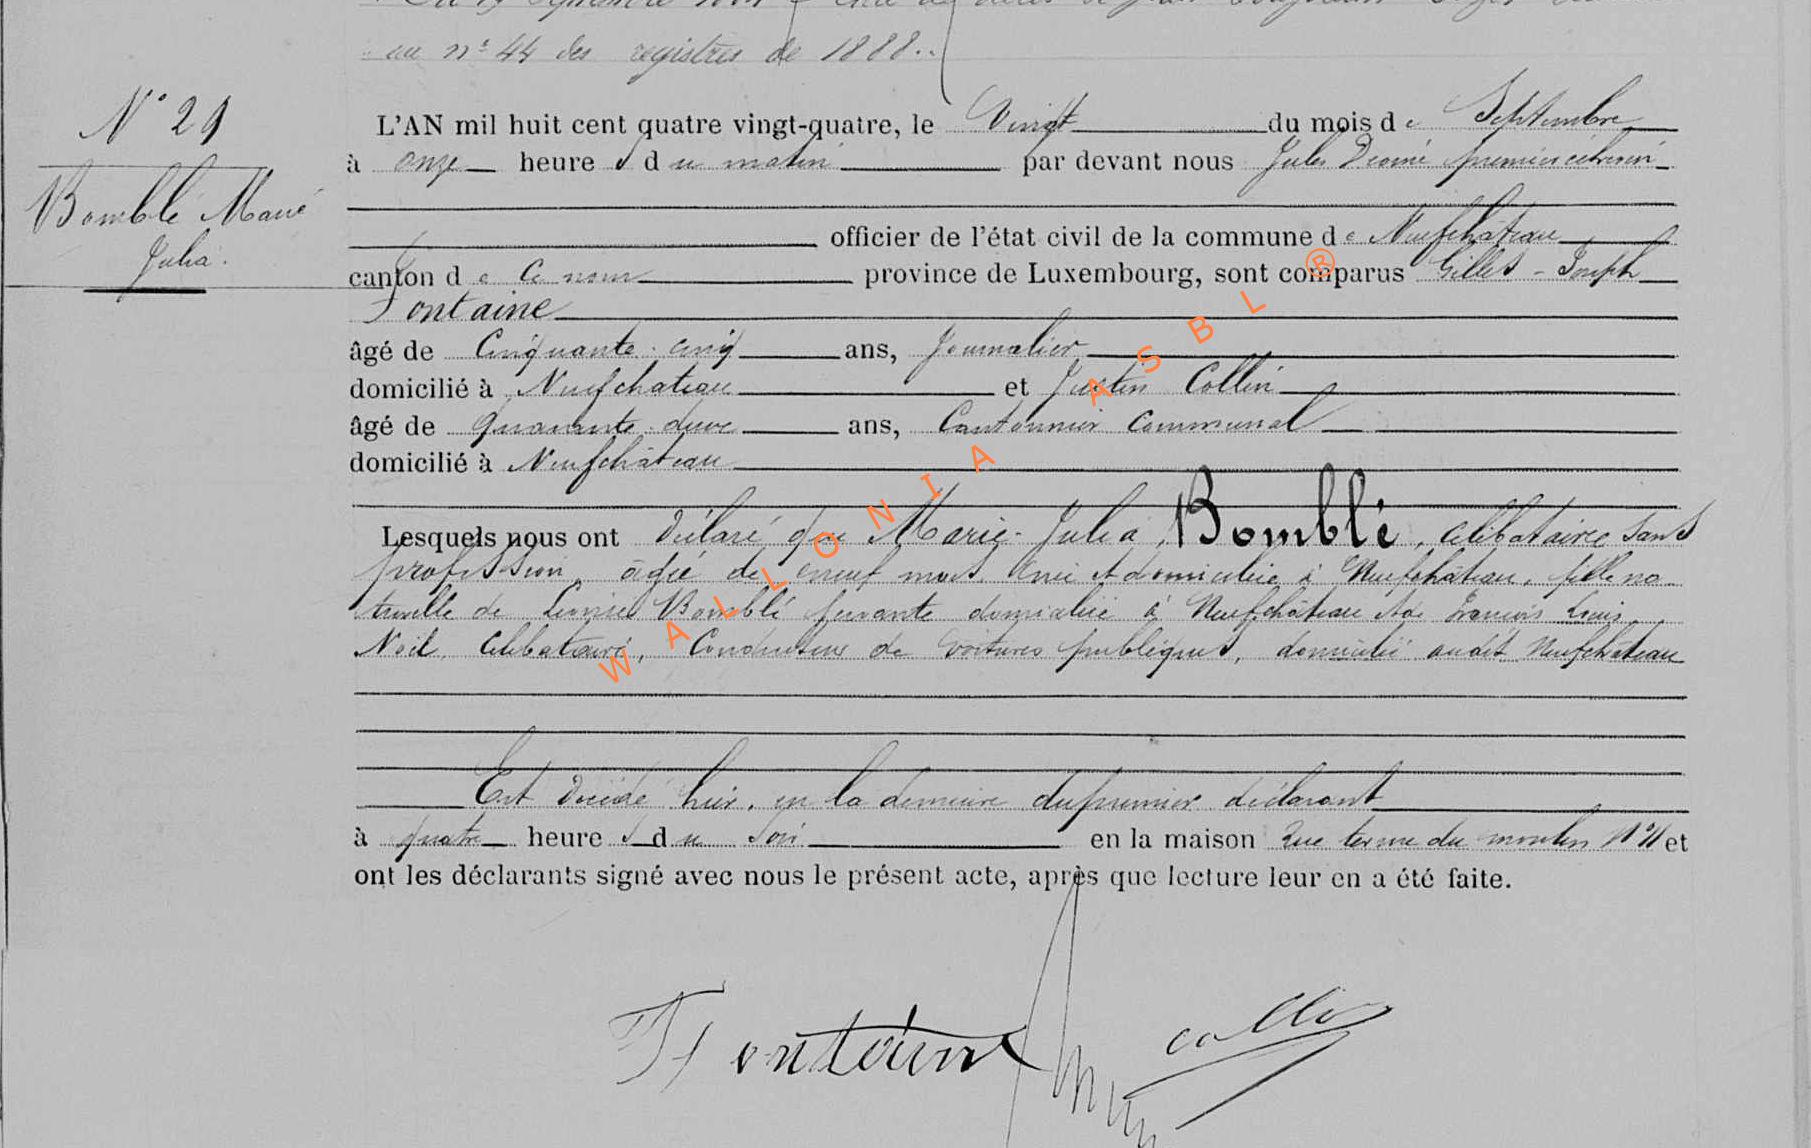 au n° 44 des registres de 1888..
N° 29
Bomblé Marie
Julia.
L'AN mil huit cent quatre vingt-quatre, le Vingt du mois de Septembre
à onze heures du matin par devant nous Jules premier échevin
officier de l'état civil de la commune de Neufchâteau
canton de ce nom province de Luxembourg, sont comparus Gilles-Joseph
Fontaine
âgé de Cinquante-cinq ans, Journalier
domicilié à Neufchateau et Justin Collin
âgé de quarante-deux ans, Cantonnier Communal
domicilié à Neufchâteau
Lesquels nous ont déclaré que Marie-Julia Bomblé, célibataire, sans
profession, âgée de neuf mois, née et domiciliée à Neufchâteau, fille na-
turelle de Louise Bomblé servante domiciliée à Neufchâteau et de François Louis
Noël, célibataire, Conducteur de voitures publiques, domicilié audit Neufchâteau
Est décédé hier, en la demeure du premier déclarant
à quatre heures du soir en la maison rue terme du moulin N° et
ont les déclarants signé avec nous le présent acte, après que lecture leur en a été faite.
Fontaine
Collin
WALLONIA ASBL ®